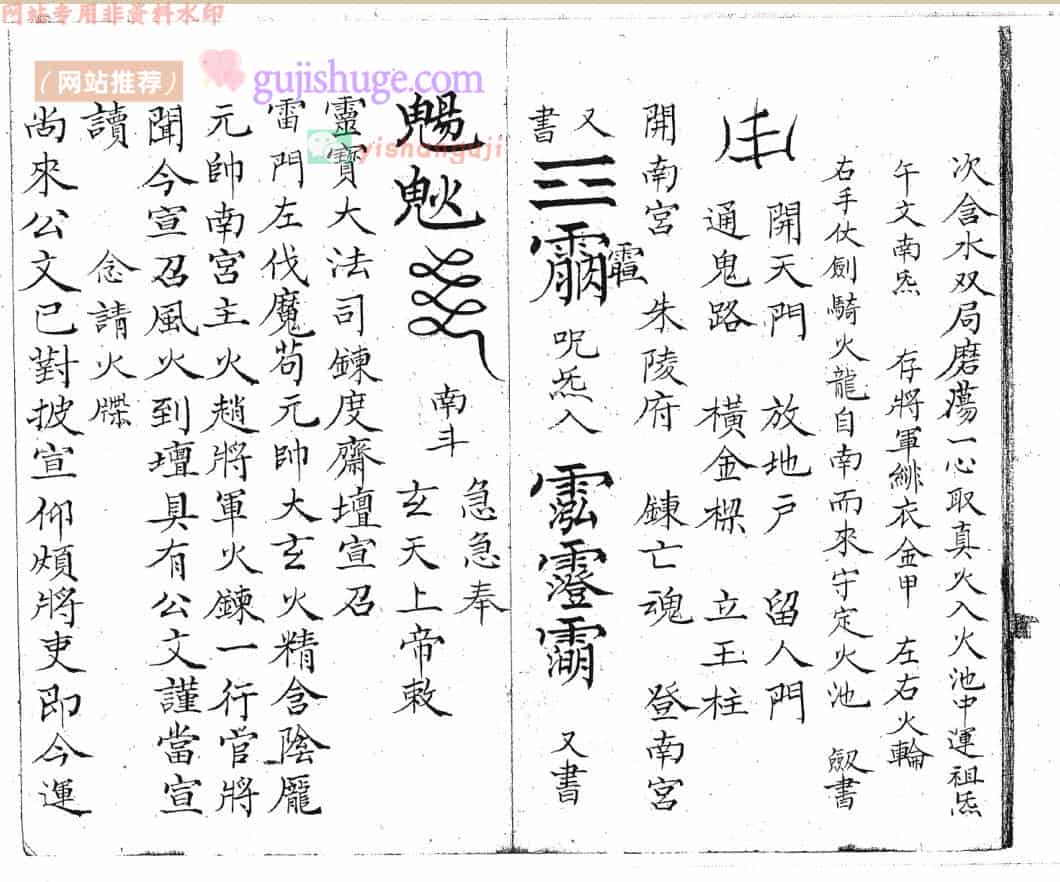 网站专用非资料水印
（网站推荐）
gujishuge.com
yishanguji
次含水双局磨蕩一心取真火入火池中運祖炁
午文南炁 存將軍緋衣金甲 左右火輪
右手仗劍騎火龍自南而來守定火池 劔書
開天門 放地户 留人門
通鬼路 橫金樑 立玉柱
開南宮 朱陵府 鍊亡魂 登南宮
又書
呪炁入
又書
南斗
急急奉
玄天上帝敕
靈寶大法司鍊度齋壇宣召
雷門左伐魔苟元帥大玄火精含陰龐
元帥南宮主火趙將軍火鍊一行官將
聞今宣召風火到壇具有公文謹當宣
讀 念請火牒
尚來公文已對披宣仰頻將吏即今運